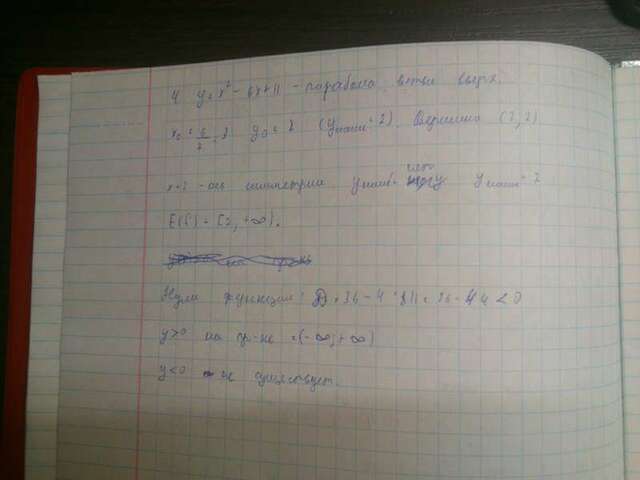 4 y = x² - 6x + 11 - парабола, ветви вверх.
x₀ = 6/2 = 3 y₀ = 2 (yнаим = 2). Вершина (3, 2)
x = 3 - ось симметрии yнаиб - нет yнаим = 2
E(f) = [2, +∞).
Нули функции: D = 36 - 4 · 11 = 36 - 44 < 0
y > 0 на пр-ке = (-∞, +∞)
y < 0 - не существует.